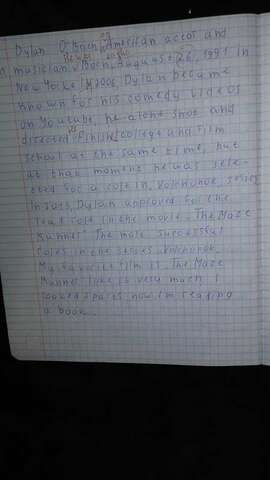 Dylan O'Brien, American actor and
musician. Born, august 26, 1991 in
New York. In 2006, Dylan became
known for his comedy videos
on Youtube, he alone shot and
directed. Finish college and film
school at the same time, but
at that moment he was sele-
cted for a role in. Volchonok, series
In 2013, Dylan approved for the
lead role in the movie. The Maze
Runner. The most successful
roles in the series. Volchonok.
My favorite film is. The Maze
Runner. like is very much. I
looked 3 parts, now I'm reading
a book.